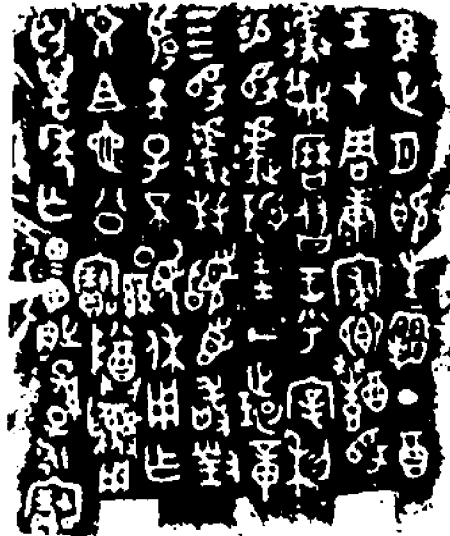 隹正月既生霸丁酉
王才周康寢鄉醴師
遽蔑曆友王乎宰利
易師遽圭一環章
四師遽拜𩒨首敢對
揚天子不顯休用乍
文且它公寶尊彝用
匄萬年亡疆百世孫子永寶